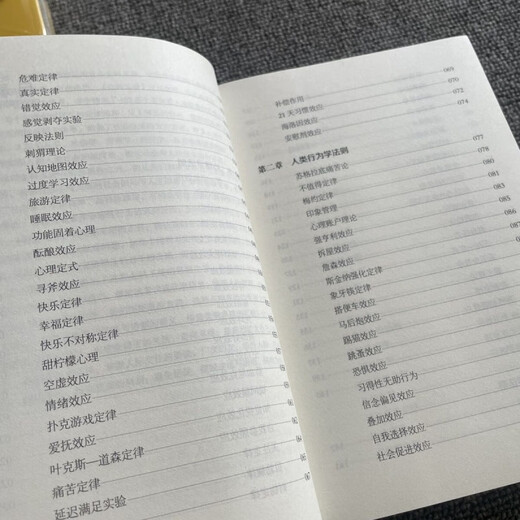 危难定律
真实定律
错觉效应
感觉剥夺实验
反映法则
刺猬理论
认知地图效应
过度学习效应
旅游定律
睡眠效应
功能固着心理
酝酿效应
心理定式
寻斧效应
快乐定律
幸福定律
快乐不对称定律
甜柠檬心理
空虚效应
情绪效应
扑克游戏定律
爱抚效应
叶克斯—道森定律
痛苦定律
延迟满足实验
069
补偿作用 070
21 天习惯效应 072
海洛因效应 074
安慰剂效应
第二章 人类行为学法则 077
苏格拉底痛苦论 078
不值得定律 080
梅约定律 081
印象管理 083
心理账户理论 084
强亨利效应 085
拆屋效应 086
詹森效应 087
斯金纳强化定律
象牙筷定律
搭便车效应
马后炮效应
踢猫效应
跳蚤效应
恐惧效应
习得性无助行为
信念偏见效应
叠加效应
自我选择效应
社会促进效应